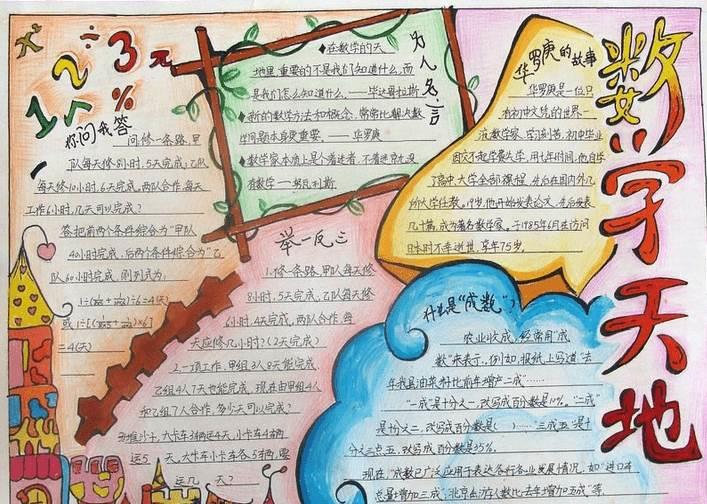 数学天地
1 2 3 元
÷
%
你问我答
问修一条路,甲
队每天修8小时,5天完成;乙队
每天修10小时,6天完成,两队合作,每天
工作6小时,几天可以完成?
答把前两个条件综合为“甲队
40小时完成,后两个条件综合为“乙
队60小时完成,则列式为:
=4(天)
名人名言
◆在数学的天
地里,重要的不是我们知道什么,而
是我们怎么知道什么。——毕达哥拉斯
◆新的数学方法和概念,常常比解决数
学问题本身更重要。——华罗庚
◆数学家本质上是个着迷者,不着迷就没
有数学——努瓦利斯
华罗庚的故事
华罗庚是一位只
有初中文凭的世界一
流数学家。学习刻苦,初中毕业
因交不起学费失学,用七年时间,他自学
了高中、大学全部课程,先后在国内外几
所大学任教。19岁,他开始发表论文,先后发表
几十篇,成为著名数学家。于1985年6月去访问
日本时不幸逝世,享年75岁。
举一反三
1.修一条路,甲队每天修
8小时,5天完成,乙队每天修
6小时,4天完成,两队合作,每
天应修几小时?(2天完成)
2.一项工作,甲组3人8天能完成,
乙组4人7天也能完成,现在由甲组4人
和乙组7人合作,多少天可以完成?
大卡车3辆运4天,小卡车4辆
运5天,大卡车小卡车各5辆,要
运几天?
什么是“成数”?
农业收成,经常用“成
数”来表示。例如,报纸上写道:“去
年我县油菜籽比前年增产二成”……
“一成”是十分之一,改写成百分数是10%。“二成”
是十分之二,改写成百分数是( )……“三成五”是十
分之三点五,改写成百分数是35%。
现在,“成数已广泛应用于表达各行各业发展情况,如“进口车
总量增加三成”,“北京出游人数比去年增加五成”等。